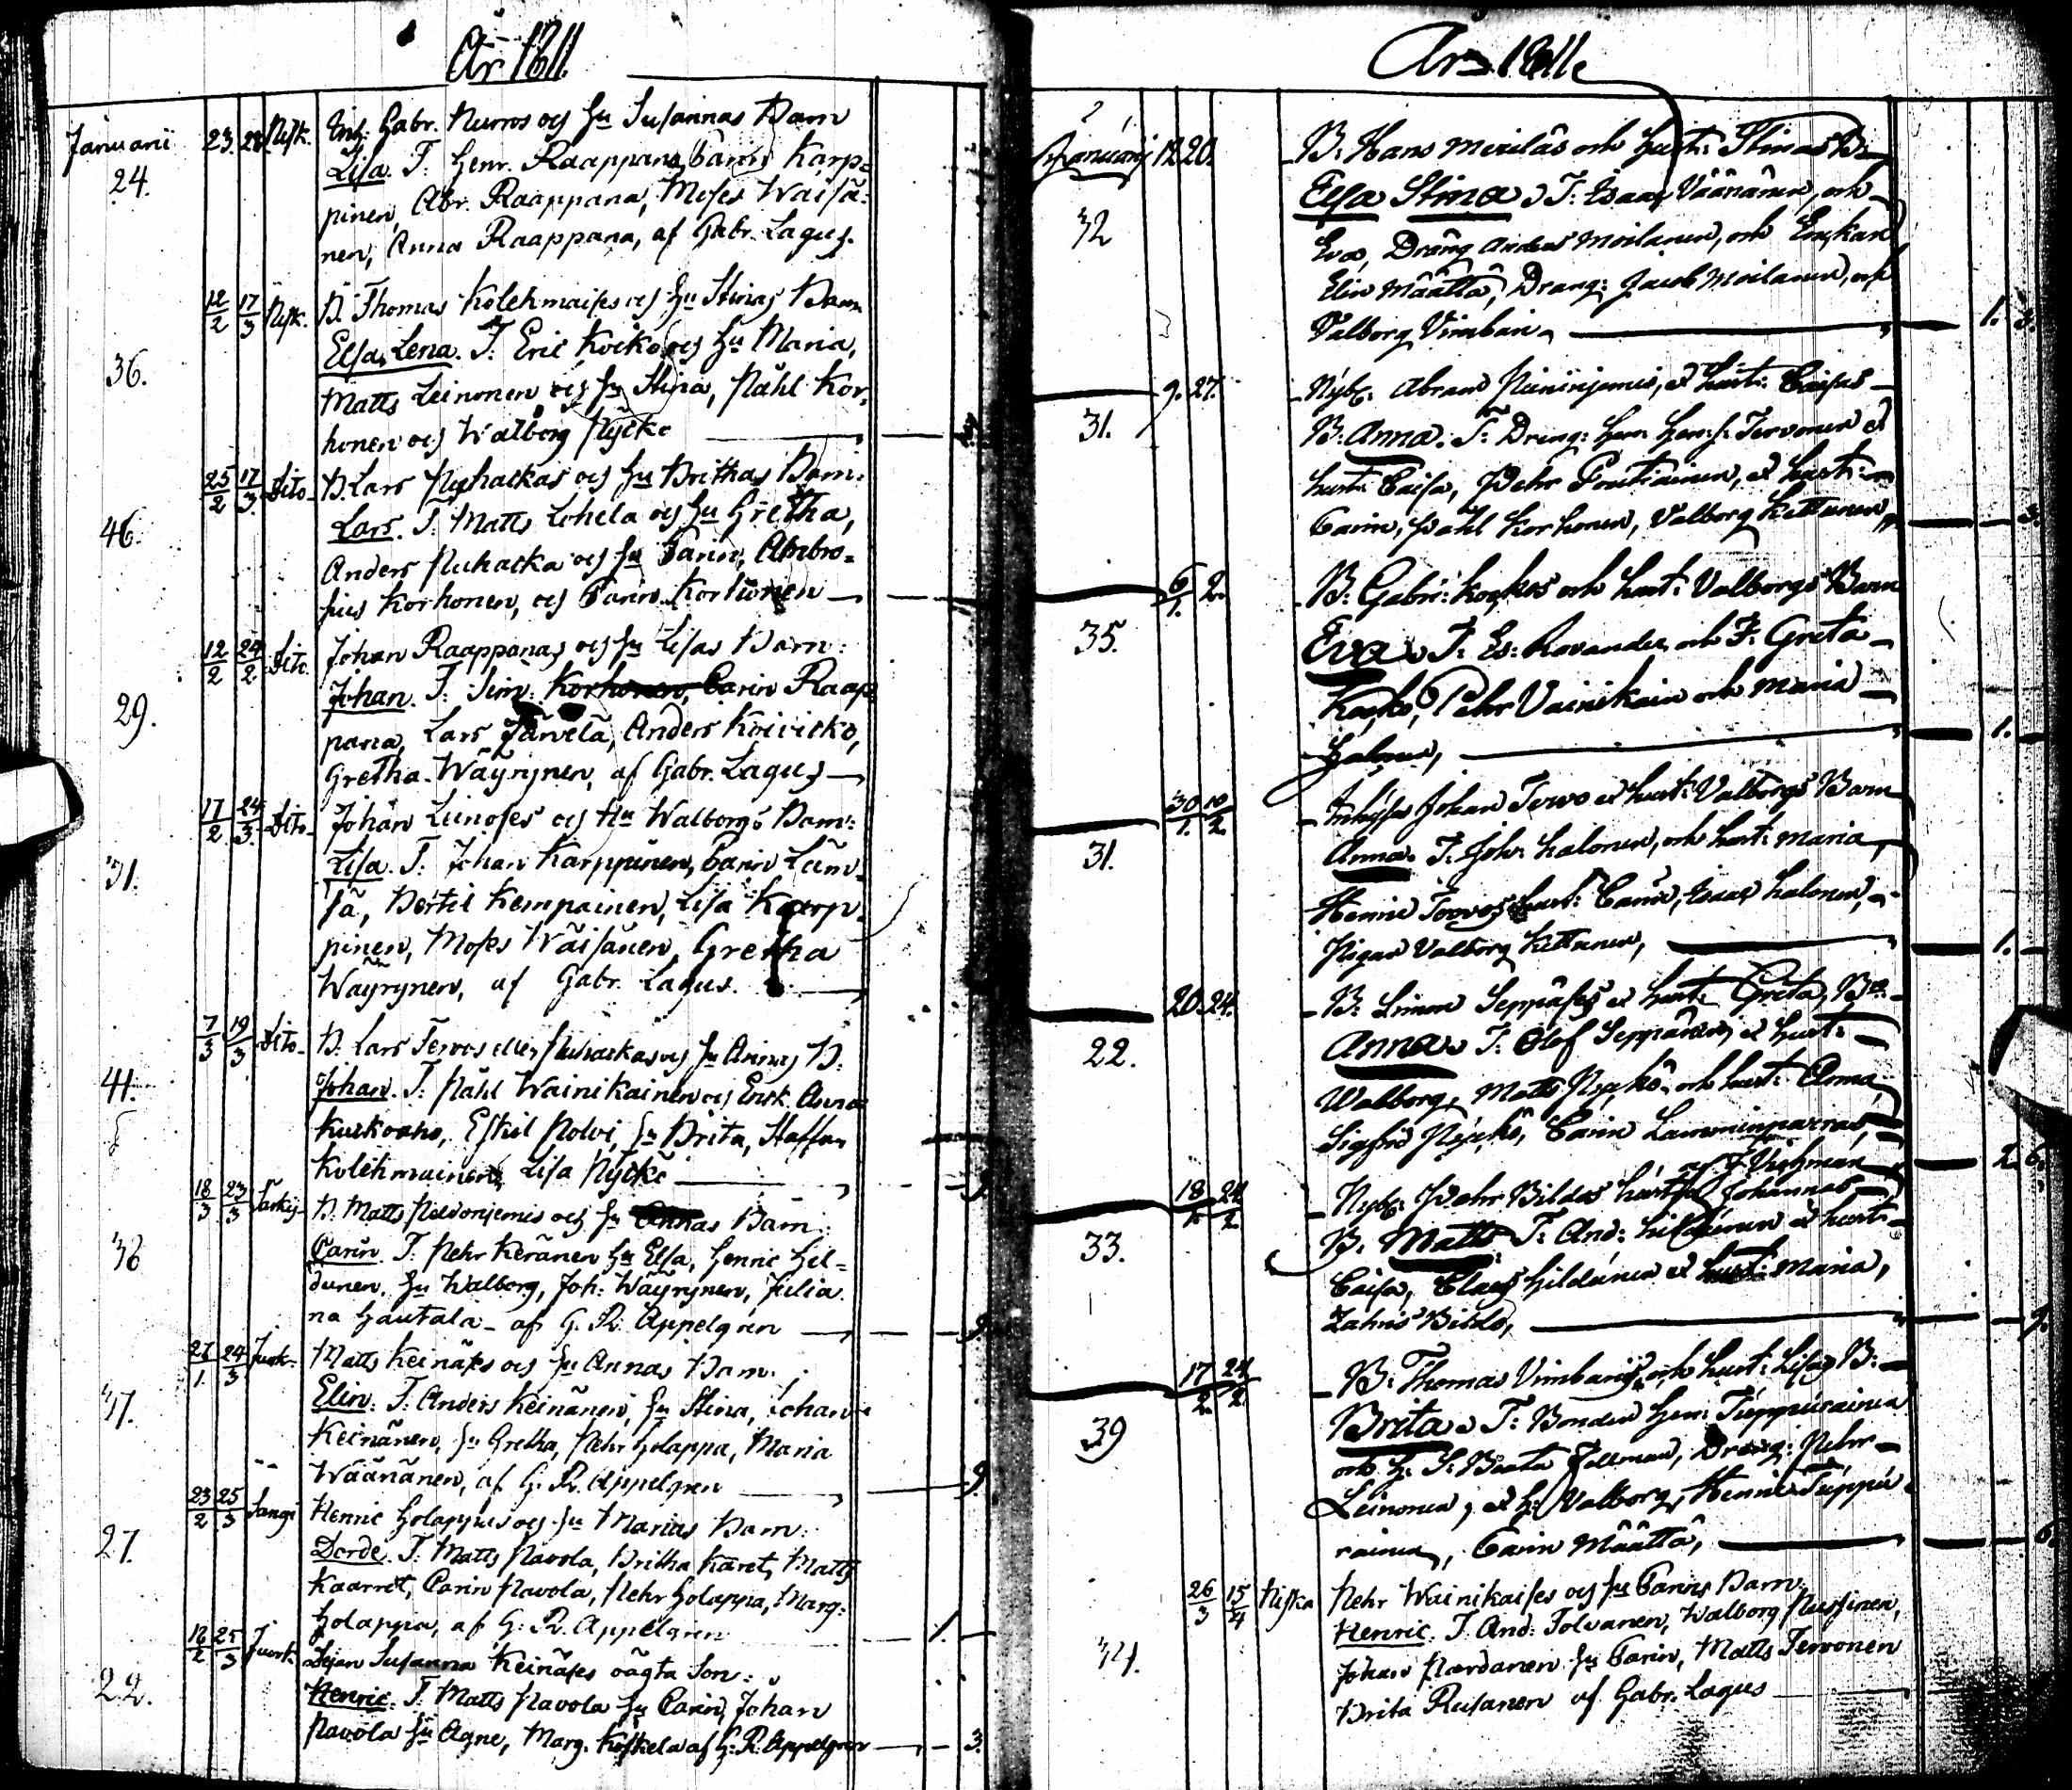 År 1811.
Januarii 23. 28 Nisk. Inh: Gabr. Nurros och Hu Susannas Barn
24. Lisa. T: Henr. Raappana, Carin Karp=
pinen, Abr. Raappana, Moses Waisä=
nen, Anna Raappana, af Gabr. Lagus.
12/2 17/3 Nisk. B. Thomas Kolehmaises och Hu Stinas Barn
36. Elsa Lena. T: Eric Koiko och Hu Maria,
Matts Leinonen och Hu Stina, Påhl Kor=
honen och Walborg Nyckö
25/2 17/3 Dito B. Lars och Hu Brithas Barn:
46. Lars. T: Matts Lohela och Hu Gretha,
Anders och Hu Carin, Ambro=
sius Korhonen, och Carin Korhonen
12/2 24/2 Dito Johan Raappanas och Hu Lisas Barn:
29. Johan. T: Sim: Korhonen, Carin Raap
pana, Lars Järvelä, Anders Koivicko,
Gretha Wäyrynen, af Gabr. Lagus
17/2 24/3 Dito Johan Leinoses och Hu Walborgs Barn:
31. Lisa. T: Johan Karppinen, Carin Läm
sä, Bertil Kempainen, Lisa Karp
pinen, Moses Wäisänen, Gretha
Wäyrynen, af Gabr. Lagus.
7/3 19/3 Dito B. Lars Tervos eller och Hu Annas B.
41. Johan. T: Påhl Wainikainen och Ensk. Anna
Eskil Polvi, Hu Brita, Staffan
Kolehmainen, Lisa Nyckö 9.
18/3 23/3 B. Matts och Hu Annas Barn:
38 Carin. T: Pehr Keränen Hu Elsa, Henric Hil=
dunen, Hu Walborg, Joh: Wäyrynen, Julia
na Hautala af G. R. Appelgren 9.
26/1 24/3 Juok. Matts Keinäses och Hu Annas Barn:
37. Elin: T: Anders Keinänen, Hu Stina, Johan
Keinänen, Hu Gretha, Pehr Holappa, Maria
Wäänänen, af G. R. Appelgren 9.
23/2 25/3 Sangi Henric Holappas och Hu Marias Barn:
27. Dorde. T: Matts Pavola, Britha Karet, Matts
Kaarret, Carin Pavola, Pehr Holappa, Marg:
Holappa, af G. R. Appelgren 1.
18/2 25/3 Juok. Pigan Susanna Keinäses oägta Son:
22. Henric. T: Matts Pavola Hu Carin, Johan
Pavola Hu Agne, Marg. Koskela af G. R. Appelgren 3.
År 1811
Januarij 12. 20. B: Hans Moilas och Hust: Stinas B:
32 Elsa Stina T: Isaac Väänänen, och
Eva, Dräng Anders Moilanen, och Enskan
Elin Määttä, Dräng: Jacob Moilanen, och
Valborg Vimbari 1. 3.
9. 27. Nyb: Abram et Hust: Caisas
31. B: Anna. T: Dräng: Hen: Tervonen et
hust: Caisa, Pehr et hust:
Carin, Påhl Korhonen, Valborg Kettunen, 3.
6/1 2. B: Gabri: Koskos och hust: Valborgs Barn
35. Eva T: Es: Rovander och F: Greta
Kosko, Pehr Vainikain och Maria
Halonen, 1.
30/1 10/2 Inhyses Johan Tervo et hust: Valborgs Barn
31. Anna. T: Joh: Halonen, och hust: Maria,
Henric Tervos hust: Carin, Isaac Halonen,
Pigan Valborg Kettunen, 1.
20. 24. B: Simon Seppäses et hust: Greta, Bn
22. Anna T: Olof Seppänen, et hust:
Walborg, Matts Nyckö och hust: Anna,
Sigfrid Nyckö, Carin
2. 6.
18/2 24/2 Nyb: Pehr Bildos hustru Johannas
33. B: Matts T: And: et hust:
Caisa, Claes Hildunen et hust: Maria,
Zahris Bildo, 9.
17/2 24/2 B: Thomas Vimbaris, och hust: Lisas B:
39 Brita T: Bonden Hen: Tieppurainen
och H: S: Beata Fellman, Dräng: Pehr
Leinonen, et H: Valborg, Henric Tieppu
rainen, Carin Määttä, 6.
26/3 15/4 Niska Pehr Wainikaises och Hu Carins Barn
34. Henric. T: And: Tolvanen, Walborg Pussinen,
Johan Hu Carin, Matts Tervonen
Brita Rusanen af Gabr. Lagus